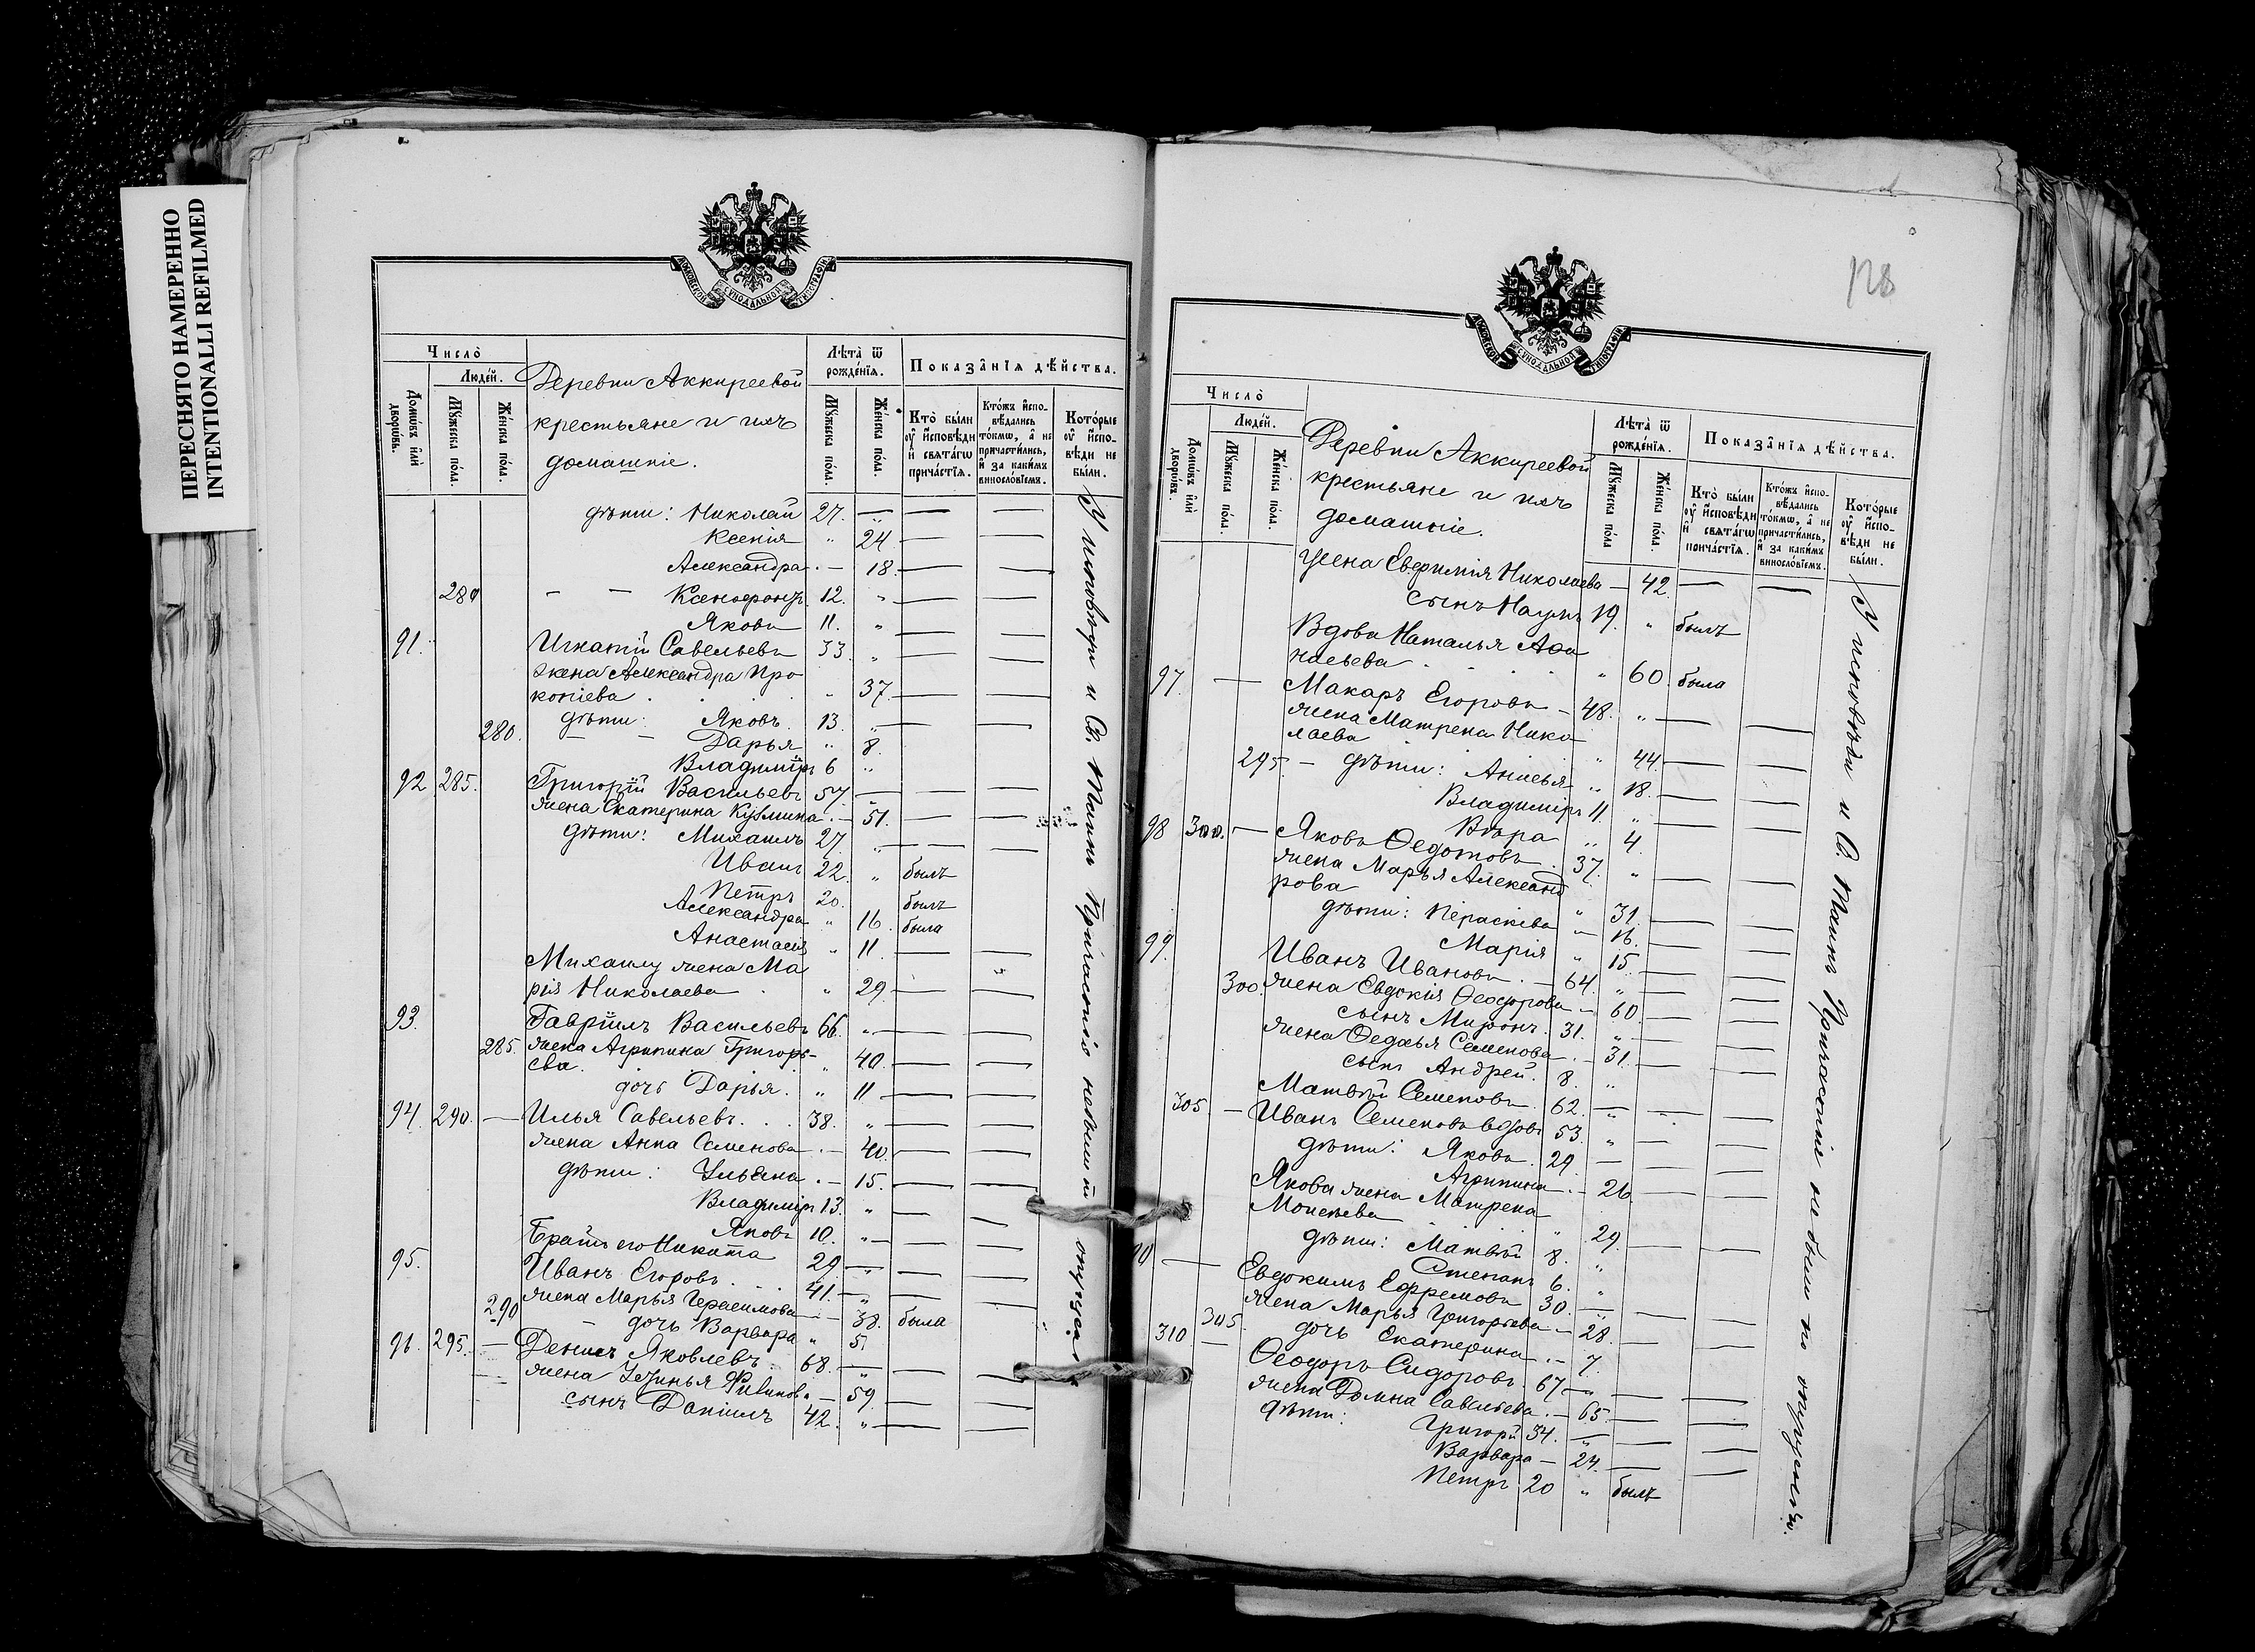 ПЕРЕСНЯТО НАМЕРЕННО
INTENTIONALLI REFILMED
МОСКОВСКОЙ СѴНОДАЛЬНОЙ ТИПОГРАФІИ
Число̀
Людей.
Домѡвъ и҆лѝ дворѡвъ.
Мꙋжеска пола.
Женска пола.
Деревни Аккиреевой
крестьяне и ихъ
домашніе.
Лѣта̀ ѿ рожденїѧ.
Мꙋжеска пола.
Женска пола.
Показанїѧ дѣйства.
Кто̀ были оу҆ и҆сповѣди и҆ свѧтагѡ причастїѧ.
Ктожъ и҆спо-вѣдались токмѡ, а҆ не причастились, и҆ за какимъ винословїемъ.
Которые оу҆ и҆спо-вѣди не были.
дѣти: Николай 27. „ — —
Ксенія „ 24 — —
Александра . — 18. — —
280 — — Ксенофонтъ 12. „ — —
Яковъ 11. „ — —
91. Игнатій Савельевъ 33 „ — —
жена Александра Про
копіева . . „ 37. — —
дѣти: Яковъ 13. „ — —
280. — — Дарья „ 8.
Владиміръ 6 „
92 285. Григорій Васильевъ 57. „ — — —
жена Екатерина Кузмина . — 51. — —
дѣти: Михаилъ 27. „ — — —
Иванъ 22. „ былъ
Петръ 20. былъ
Александра „ 16. была
Анастасія „ 11 — —
Михаилу жена Ма
рія Николаева . „ 29. — —
93. Гавріилъ Васильевъ 66. „ — — —
285. жена Агрипина Григорь-
ева. „ 40. — —
дочь Дарія. „ 11 — —
94. 290. — Илья Савельевъ. . . 38. „ — — —
жена Анна Семенова . — 40. — —
дѣти: Ульяна . — 15. — —
Владиміръ 13. „ — —
Яковъ 10. „ — — —
Братъ его Никита 29 — „ — —
95. Иванъ Егоровъ . . 41. — „ — —
290 жена Марья Герасимова — 38. была
— дочь Варвара „ 5.
96. 295. — Денисъ Яковлевъ. 68. — „ — —
жена — 59. — —
сынъ Даніилъ 42. „ — —
У исповѣди и Св. Таинъ Причастія небыли по опущ
128
МОСКОВСКОЙ СѴНОДАЛЬНОЙ ТИПОГРАФІИ
Число̀
Людей.
Домѡвъ и҆лѝ дворѡвъ.
Мꙋжеска пола.
Женска пола.
Деревни Аккиреевой
крестьяне и ихъ
домашніе.
Лѣта̀ ѿ рожденїѧ.
Мꙋжеска пола
Женска пола.
Показанїѧ дѣйства.
Кто̀ были оу҆ и҆сповѣди и҆ свѧтагѡ причастїѧ.
Ктожъ и҆спо-вѣдались токмѡ, а҆ не причастились, и҆ за какимъ винословїемъ.
Которые оу҆ и҆спо-вѣди не были.
жена Евфимія Николаева — 42. — —
сынъ Наумъ 19. „ былъ
Вдова Наталья Аѳа
насьева . . . „ 60. была
97. — Макаръ Егоровъ — 48. „ — —
жена Матрена Нико
лаева „ 44. — —
295. — дѣти: Анисья „ 18. — —
Владиміръ 11. „ — —
Вѣра „ 4.
98 300. — Яковъ Ѳедотовъ . 37. „ — —
жена Марья Александ
рова „ 31. — —
дѣти: Параскева — 16. — —
Марія „ 15. — —
99. Иванъ Ивановъ . — 64. „ — —
300. жена Евдокія Ѳеодорова — 60. — —
сынъ Миронъ. 31. „ — —
жена Ѳедосья Семенова . — 31. — —
сынъ Андрей. 8. „
Матвѣй Семеновъ. 62. — „ — —
305 — Иванъ Семеновъ вдовъ 53. „ — —
дѣти: Яковъ. 29. — — —
Агрипина . — 26. — —
Якова жена Матрена
Моисеева „ 29. — —
дѣти: Матвѣй 8. „
Степанъ 6. „
00 — Евдокимъ Ефремовъ 30. — „ — —
жена Марья Григорьева — 28. — —
305. дочь Екатерина . — 7.
310 — Ѳеодоръ Сидоровъ. 67 — „ — —
жена Домна Савельева . — 65. — —
дѣти: Григорій 34. — „ — —
Варвара — 24. — —
Петръ 20 „ былъ
У исповѣди и Св. Таинъ Причастія не были по опущенію.